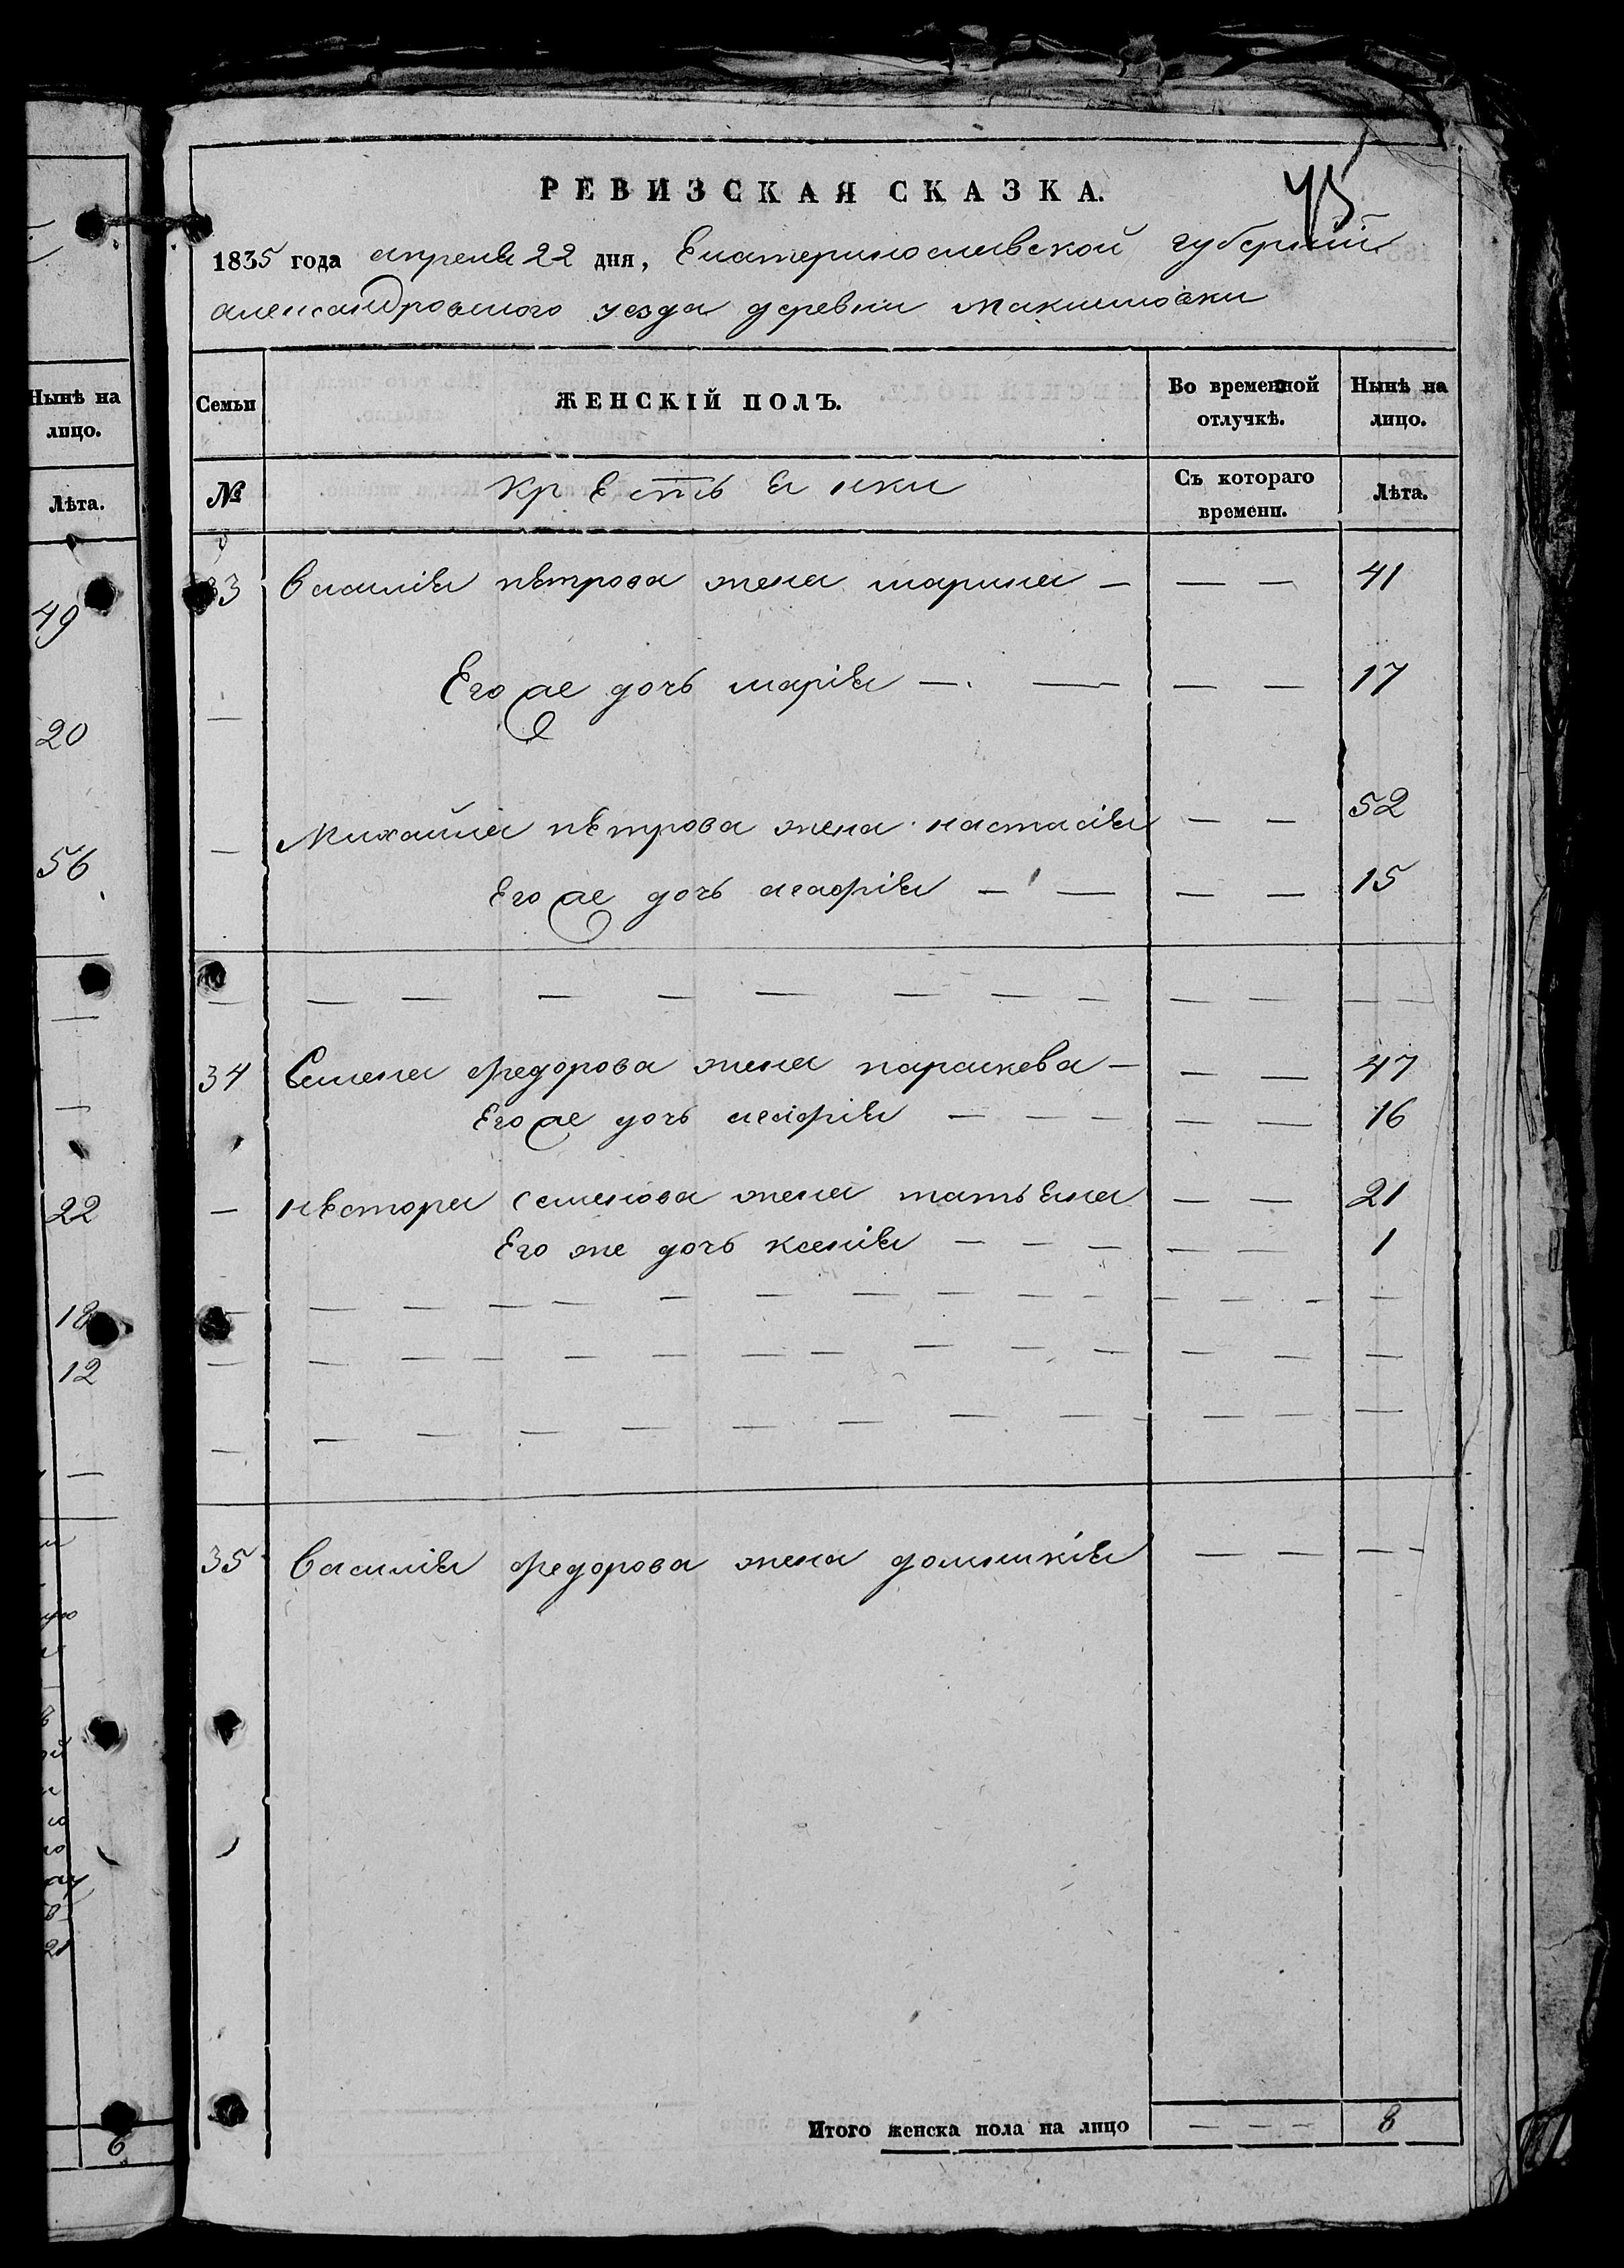 45
РЕВИЗСКАЯ СКАЗКА.
1835 года апреля 22 дня, Екатеринославской губернии
александровского уезда деревни Максимовки
Семьи
ЖЕНСКІЙ ПОЛЪ.
Во временной отлучкѣ.
Нынѣ на лицо.
№
крестьянки
Съ котораго времени.
Лѣта.
33 василия петрова жена марина — — — 41
Его же дочь мария — — — — 17
— Михайла петрова жена настасия — — 52
Его же дочь — — — — 15
— — — — — — — — — — — — —
34 Семена федорова жена параскева — — — 47
Его же дочь — — — — — 16
— нестора семенова жена татьяна — — 21
Его же дочь ксения — — — — — 1
— — — — — — — — — — — — — —
— — — — — — — — — — — — — —
— — — — — — — — — — — —
35 василия федорова жена — — — —
Итого женска пола на лицо — — — 8
Нынѣ на
лицо.
Лѣта.
49
20
56
22
18
12
6